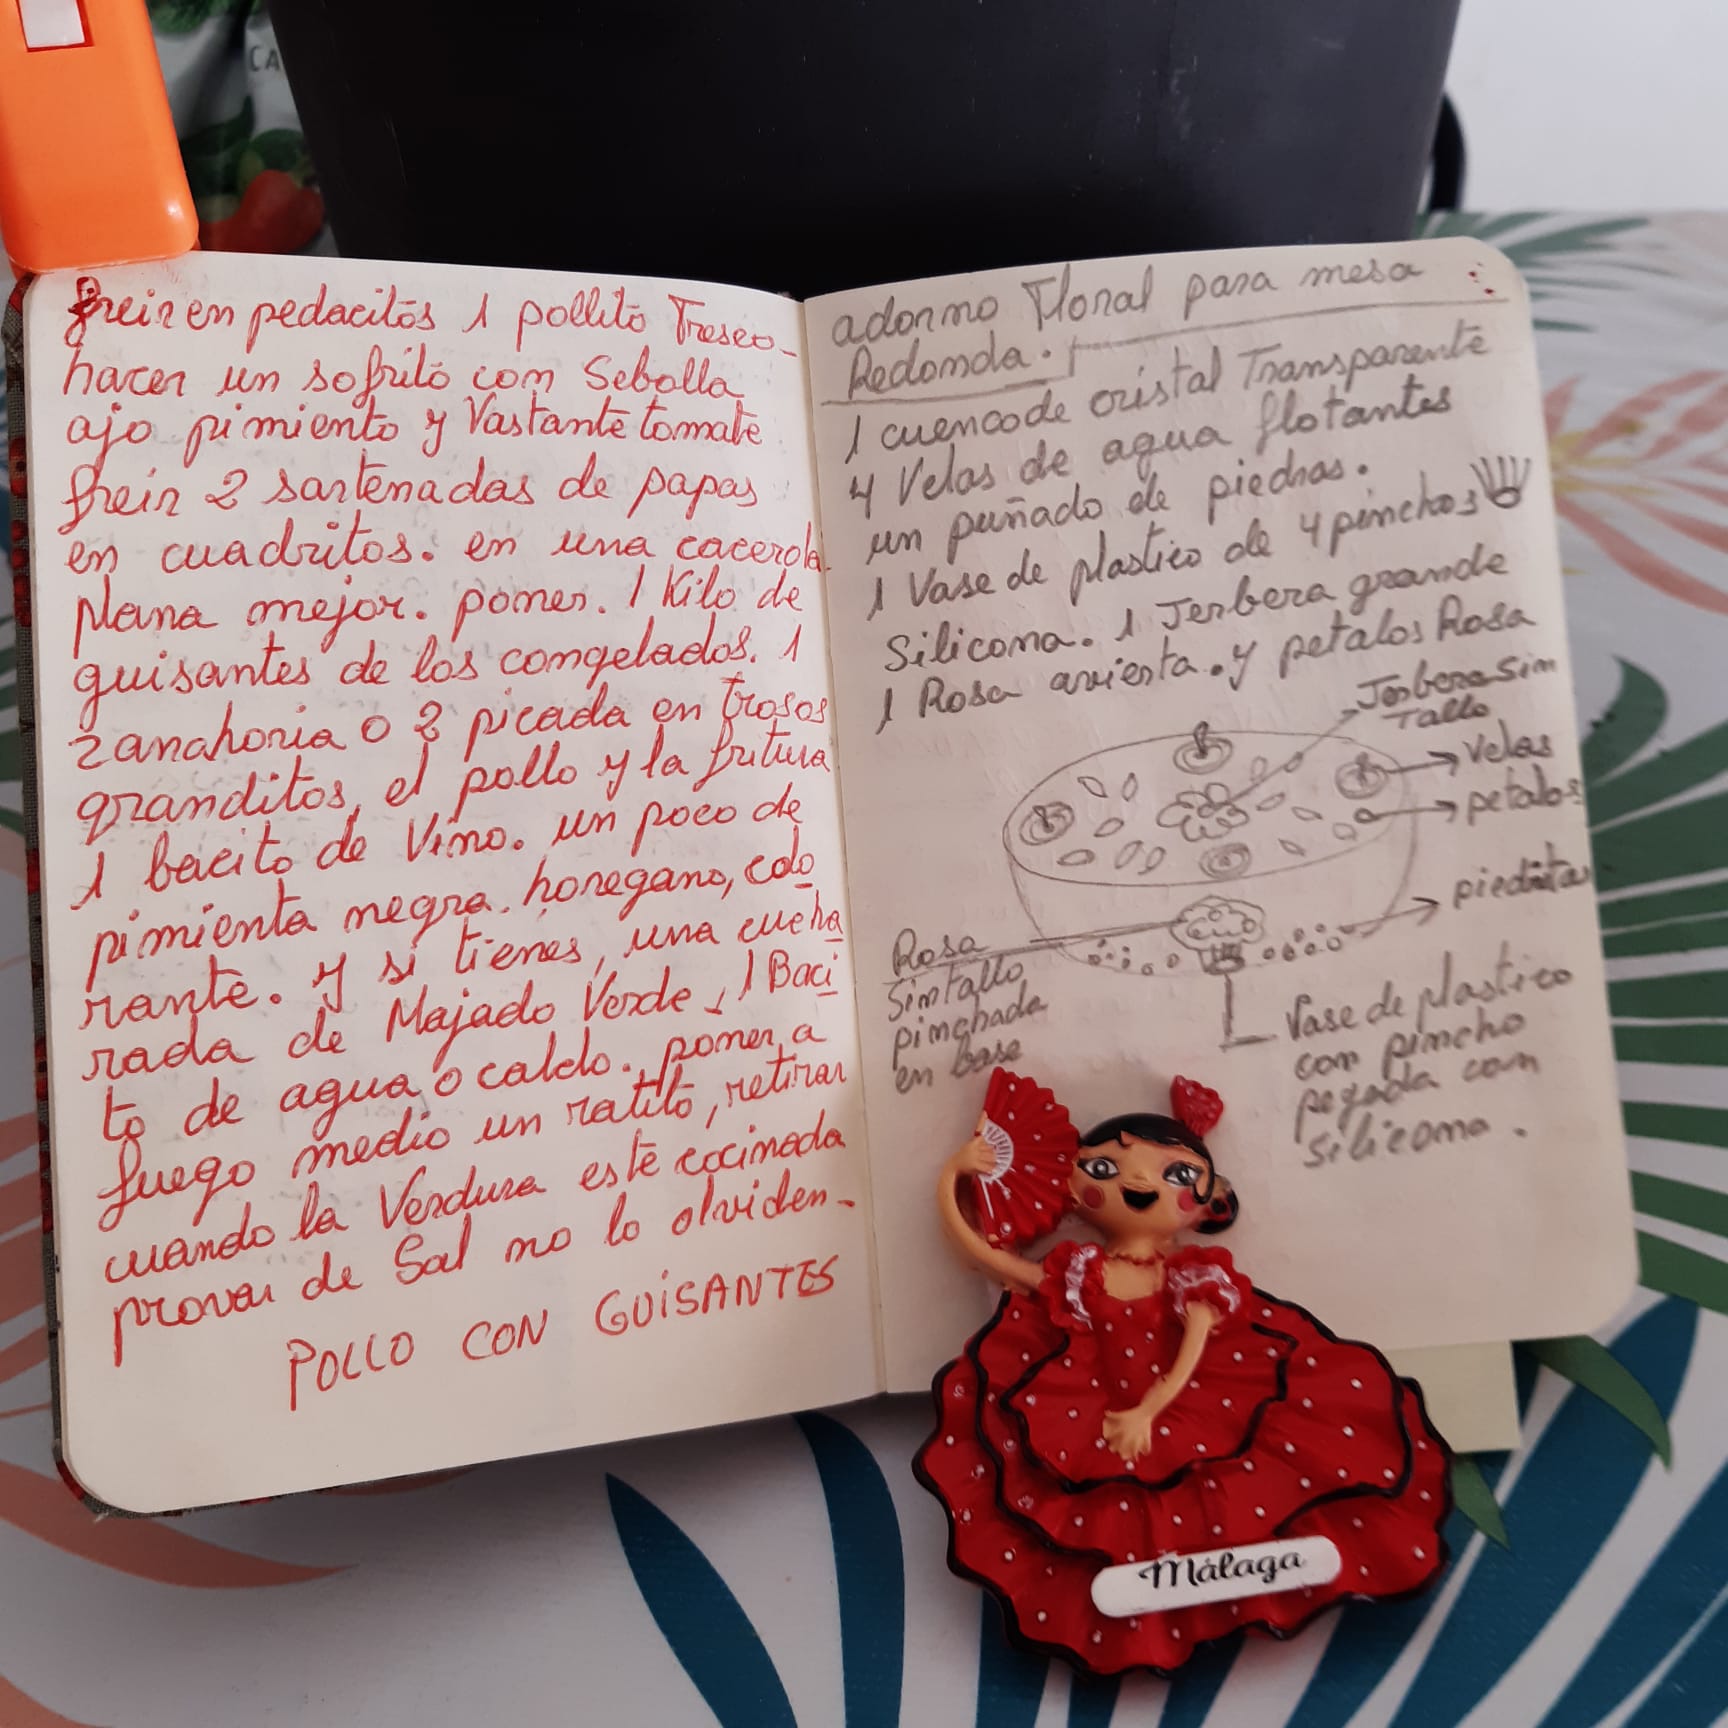 freir en pedacitos 1 pollito Fresco-
hacer un sofrito con Sebolla
ajo pimiento y Vastante tomate
freir 2 sartenadas de papas
en cuadritos. en una cacerola
plana mejor. poner. 1 Kilo de
guisantes de los congelados. 1
zanahoria o 2 picada en trosos
granditos, el pollo y la fritura
1 bacito de Vino. un poco de
pimienta negra. horegano, colo
rante. y si tienes, una cucha
rada de Majado Verde, 1 Baci
to de agua o caldo. poner a
fuego medio un ratito, retirar
cuando la Verdura esté cocinada
provar de Sal no lo olviden-
POLLO CON GUISANTES
adorno Floral para mesa
Redonda.
1 cuenco de cristal Transparente
4 Velas de agua flotantes
un puñado de piedras.
1 Vase de plastico de 4 pinchos
Silicona. 1 Jerbera grande
1 Rosa avierta. y petalos Rosa
Jerbera Sin
Tallo
Velas
petalos
pieditas
Rosa
Sin tallo
pinchada
en base
Vase de plastico
con pincho
pegada con
silicona.
Málaga
CA